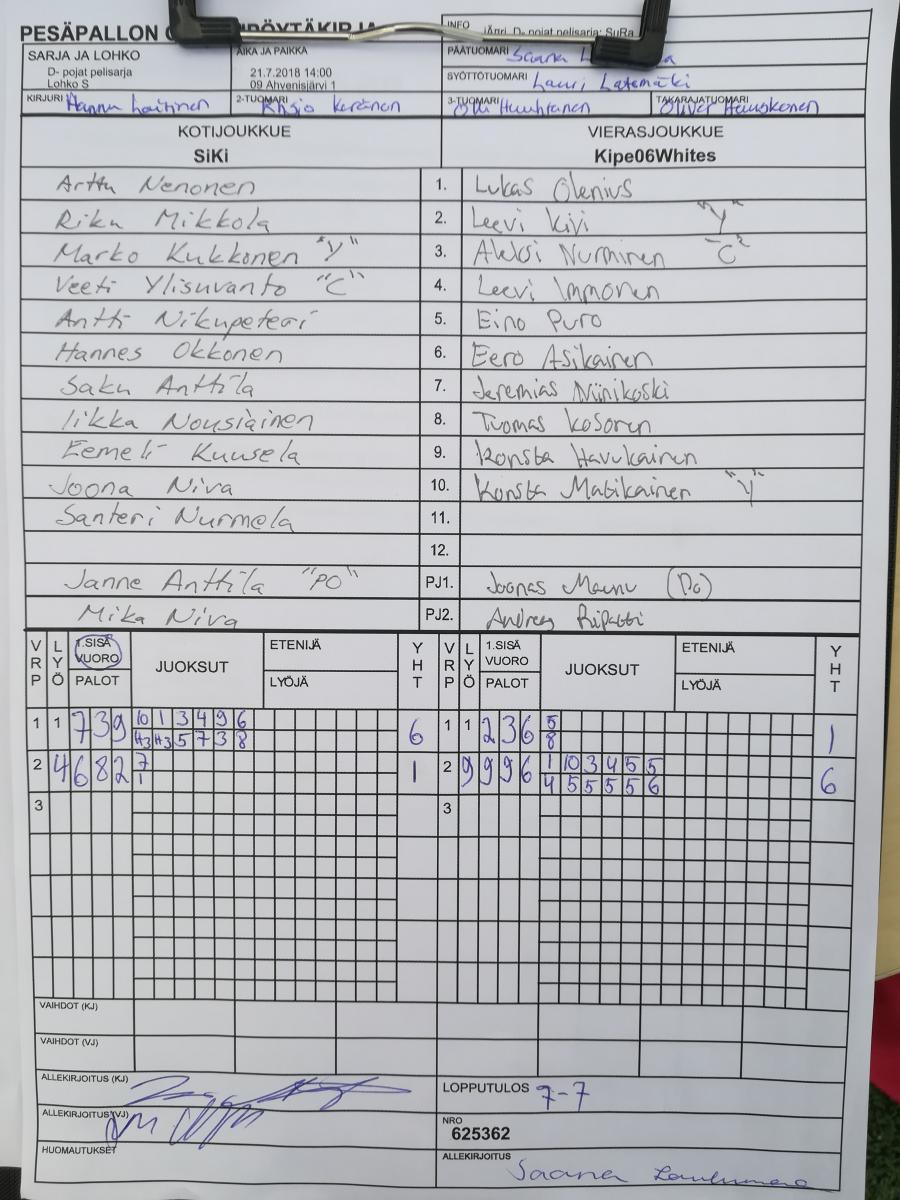 PESÄPALLON
INFO
SARJA JA LOHKO
D- pojat pelisarja
Lohko S
AIKA JA PAIKKA
21.7.2018 14:00
09 Ahvenisjärvi 1
PÄÄTUOMARI Saana
SYÖTTÖTUOMARI Lauri Latomäki
KIRJURI Hannu Laitinen
2-TUOMARI Keränen
3-TUOMARI Olli Huuhtanen
TAKARAJATUOMARI Oliver Hauskonen
KOTIJOUKKUE
SiKi
VIERASJOUKKUE
Kipe06Whites
Arttu Nenonen 1. Lukas Olenius
Riku Mikkola 2. Leevi Kivi "Y"
Marko Kukkonen "Y" 3. Aleksi Nurminen "C"
Veeti Ylisuvanto "C" 4. Leevi Immonen
Antti Nikupeteri 5. Eino Puro
Hannes Okkonen 6. Eero Asikainen
Saku Anttila 7. Jeremias Niinikoski
Iikka Nousiainen 8. Tuomas Kosonen
Eemeli Kuusela 9. Konsta Havukainen
Joona Niva 10. Konsta Matikainen "Y"
Santeri Nurmela 11.
12.
Janne Anttila "PO" PJ1. Joonas
Mika Niva PJ2. Andreas Ripatti
VRP LYÖ 1.SISÄ VUORO PALOT JUOKSUT ETENIJÄ LYÖJÄ YHT VRP LYÖ 1.SISÄ VUORO PALOT JUOKSUT ETENIJÄ LYÖJÄ YHT
1 1 7 3 9 10 1 3 4 9 6 6 1 1 2 3 6 5 1
H3 H3 5 7 3 8 8
2 4 6 8 2 7 1 2 9 9 9 6 1 10 3 4 5 5 6
1 4 5 5 5 5 6
3 3
VAIHDOT (KJ)
VAIHDOT (VJ)
ALLEKIRJOITUS (KJ)
LOPPUTULOS 7-7
ALLEKIRJOITUS (VJ)
NRO
625362
HUOMAUTUKSET
ALLEKIRJOITUS
Saana